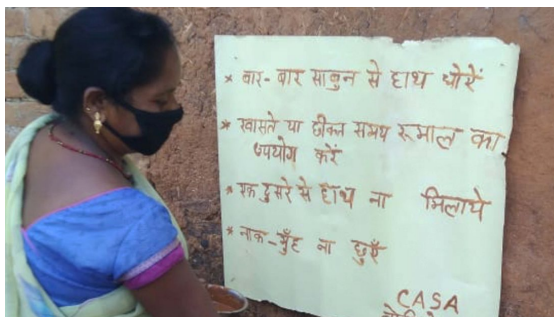 * बार-बार साबुन से हाथ धोऐं
* खासते या छीकत समय रूमाल का
उपयोग करें
* एक दुसरे से हाथ ना मिलाये
* नाक-मुँह ना छुएँ
CASA